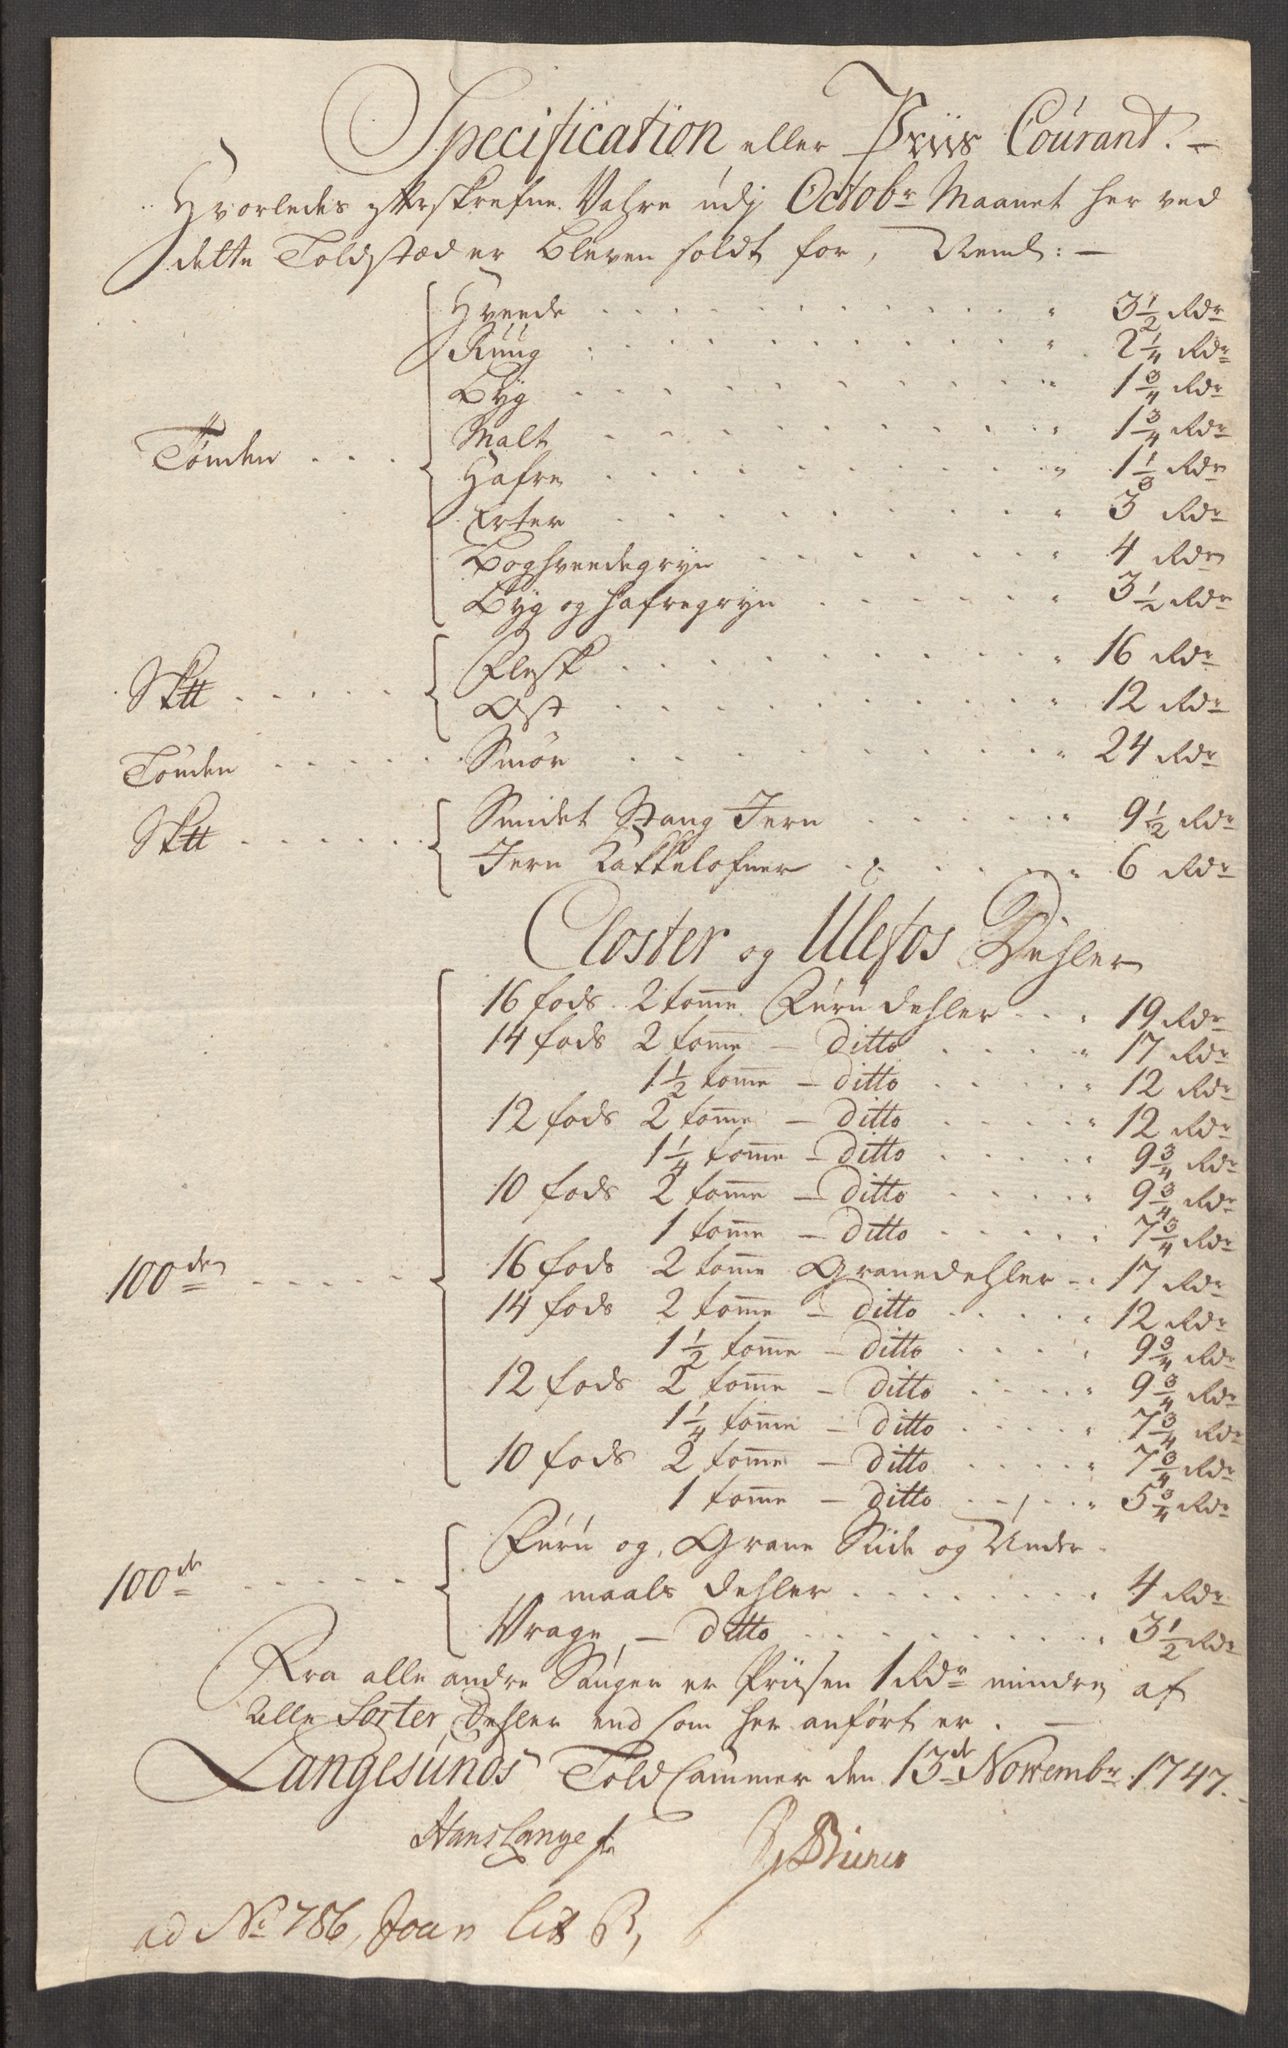 Specification eller Priis Courant.
Hvorledes efterskrefne Vahre udj Octobr Maanet her ved
dette Toldstæd er bleven soldt for, Neml:
Hveede 3 1/2 Rdr
Ruug 2 1/4 Rdr
Byg 1 3/4 Rdr
Malt 1 3/4 Rdr
Tønden
Hafre 1 1/3 Rdr
Erter 3 Rdr
Boghveedegryn 4 Rdr
Byg og Hafregryn 3 1/2 Rdr
Flesk 16 Rdr
Sk℔
Ost 12 Rdr
Tønden Smør 24 Rdr
Smidet Stang Jern 9 1/2 Rdr
Sk℔
Jern Kakkelofner 6 Rdr
Closter og Ulefos Dehler
16 fods 2 tomme Furu dehler 19 Rdr
14 fods 2 tomme - ditto 17 Rdr
1 1/2 tomme - ditto 12 Rdr
12 fods 2 tomme - ditto 12 Rdr
1 1/4 tomme - ditto 9 3/4 Rdr
10 fods 2 tomme - ditto 9 3/4 Rdr
1 tomme - ditto 7 3/4 Rdr
100de 16 fods 2 tomme Granedehler 17 Rdr
14 fods 2 tomme - ditto 12 Rdr
1 1/2 tomme - ditto 9 3/4 Rdr
12 fods 2 tomme - ditto 9 3/4 Rdr
1 1/4 tomme - ditto 7 3/4 Rdr
10 fods 2 tomme - ditto 7 3/4 Rdr
1 tomme - ditto 5 3/4 Rdr
Furu og Grane Siide og Under-
100de maals dehler 4 Rdr
Vrage - ditto 3 1/2 Rdr
Fra alle andre Sauger er Priisen 1 Rdr mindre af
alle Sorter Dehler end som her anført er.
Langesunds Told Cammer den 13de Novembr 1747.
Hans Lange
ad No 786, Joan lit B,